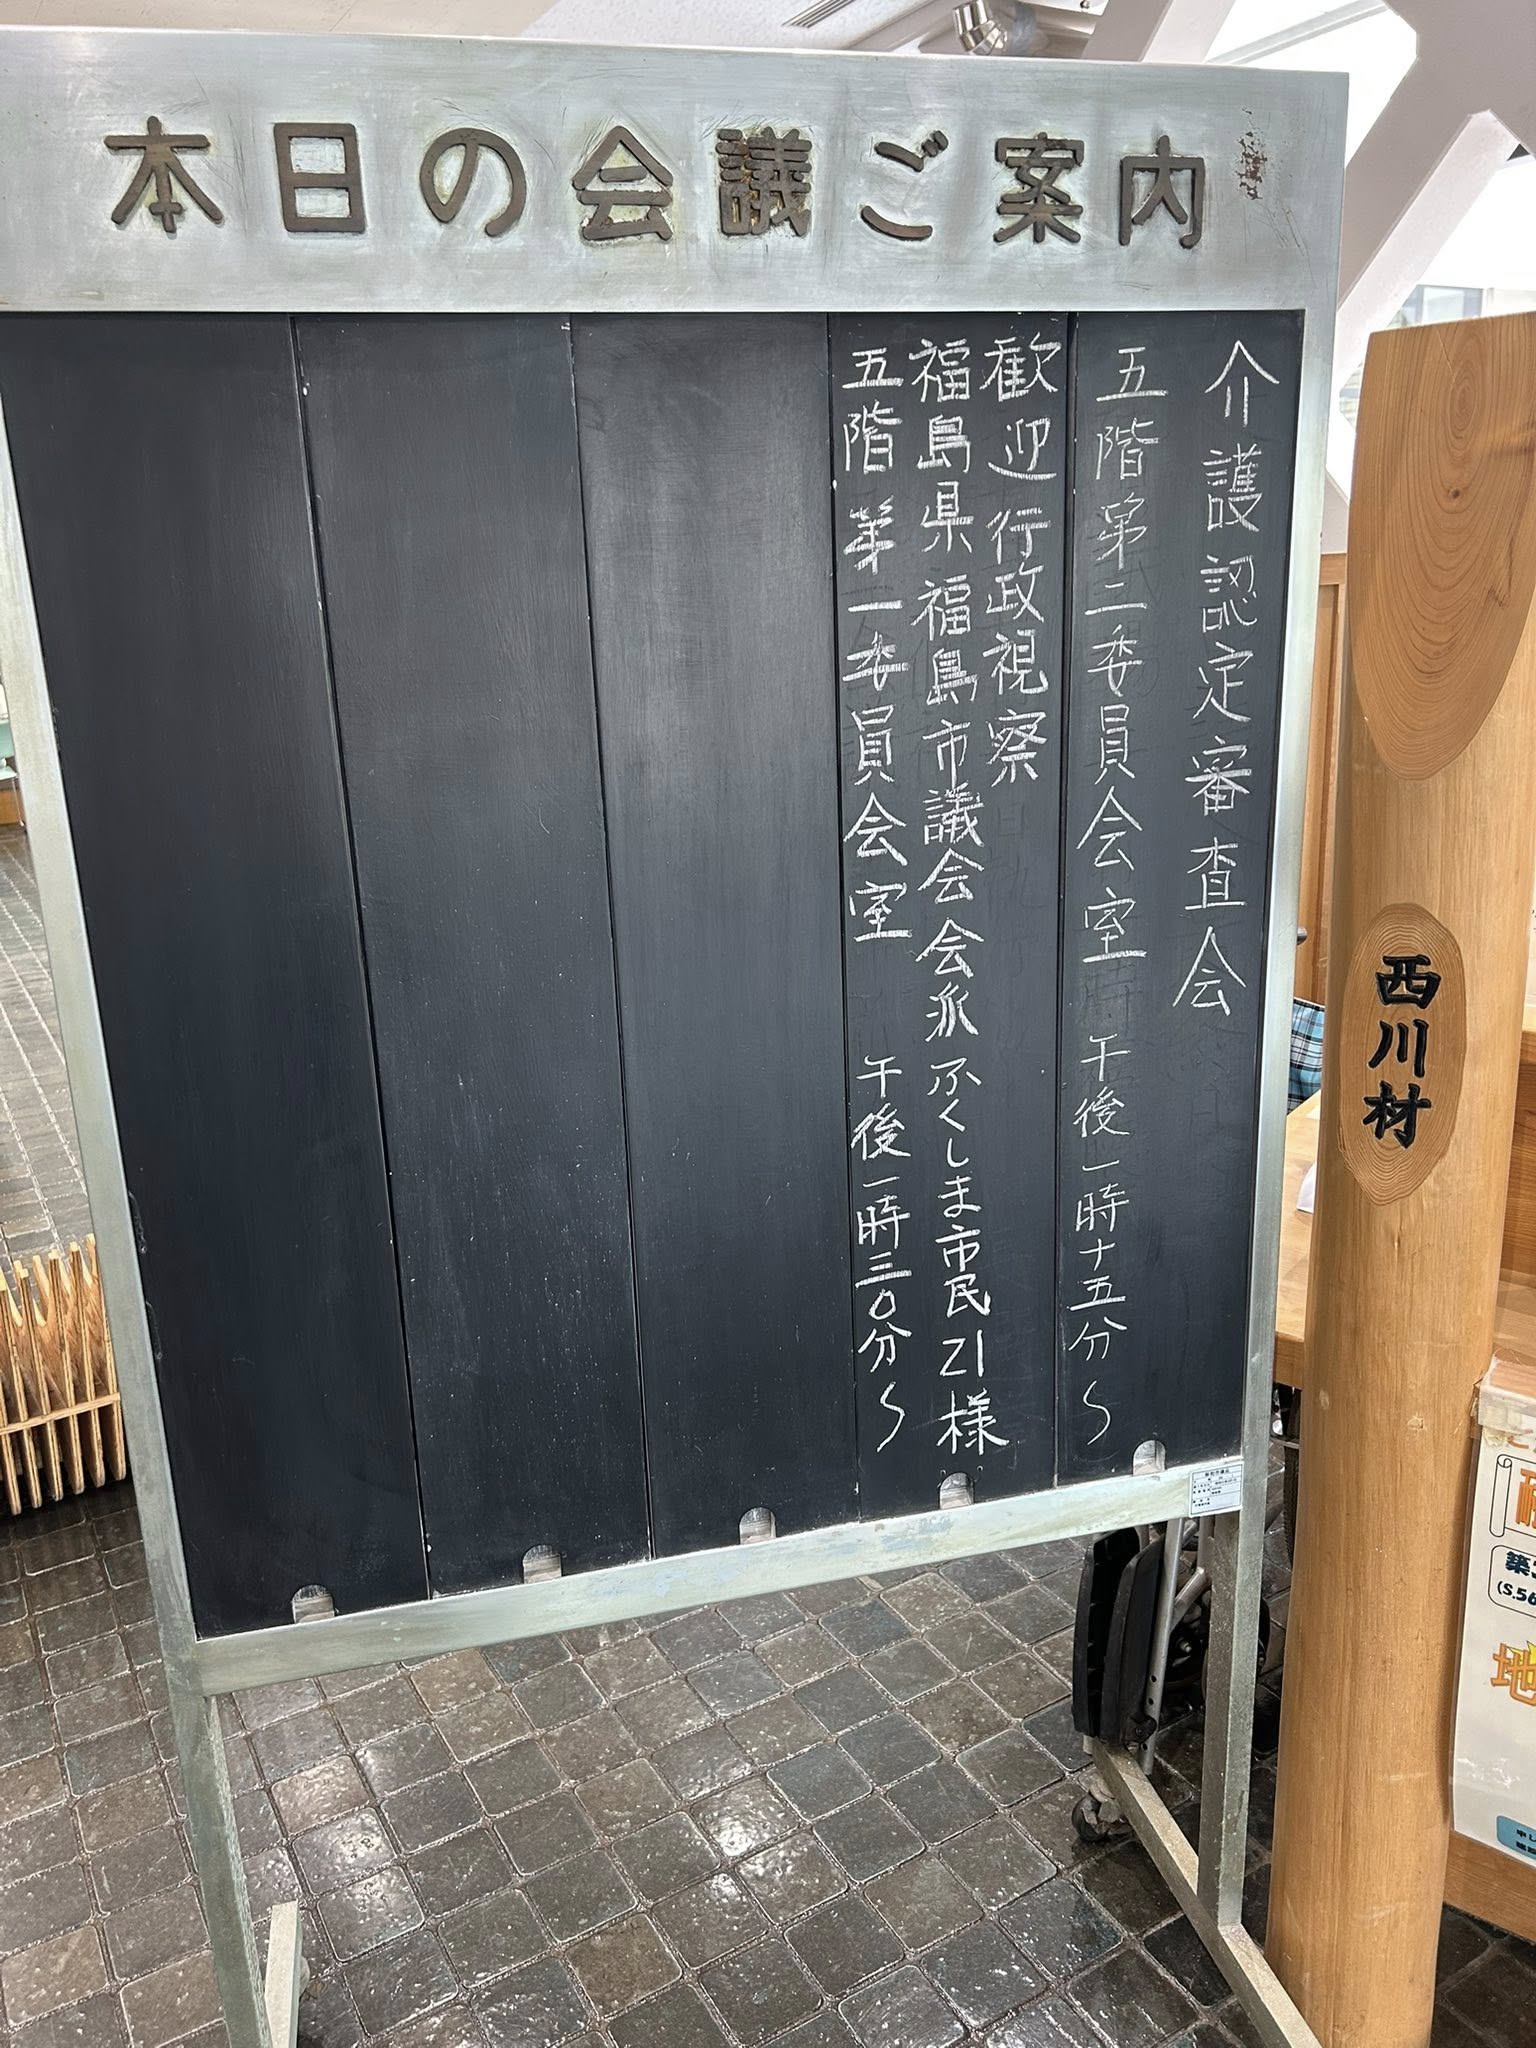 本日の会議ご案内
介護認定審査会
五階第二委員会室 午後一時十五分〜
歓迎 行政視察
福島県 福島市議会 会派 ふくしま市民21様
五階 第一委員会室 午後一時三〇分〜
西川材